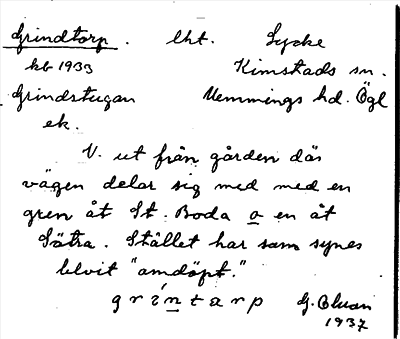 Grindtorp. lht. Lycke
kb 1933 Kimstads sn.
Grindstugan Memmings hd. Ögl
ek.
V. ut från gården där
vägen delar sig med med en
gren åt St. Boda o en åt
Sätra. Stället har som synes
blvit "omdöpt."
g r i n t a r p G. Olson
1937